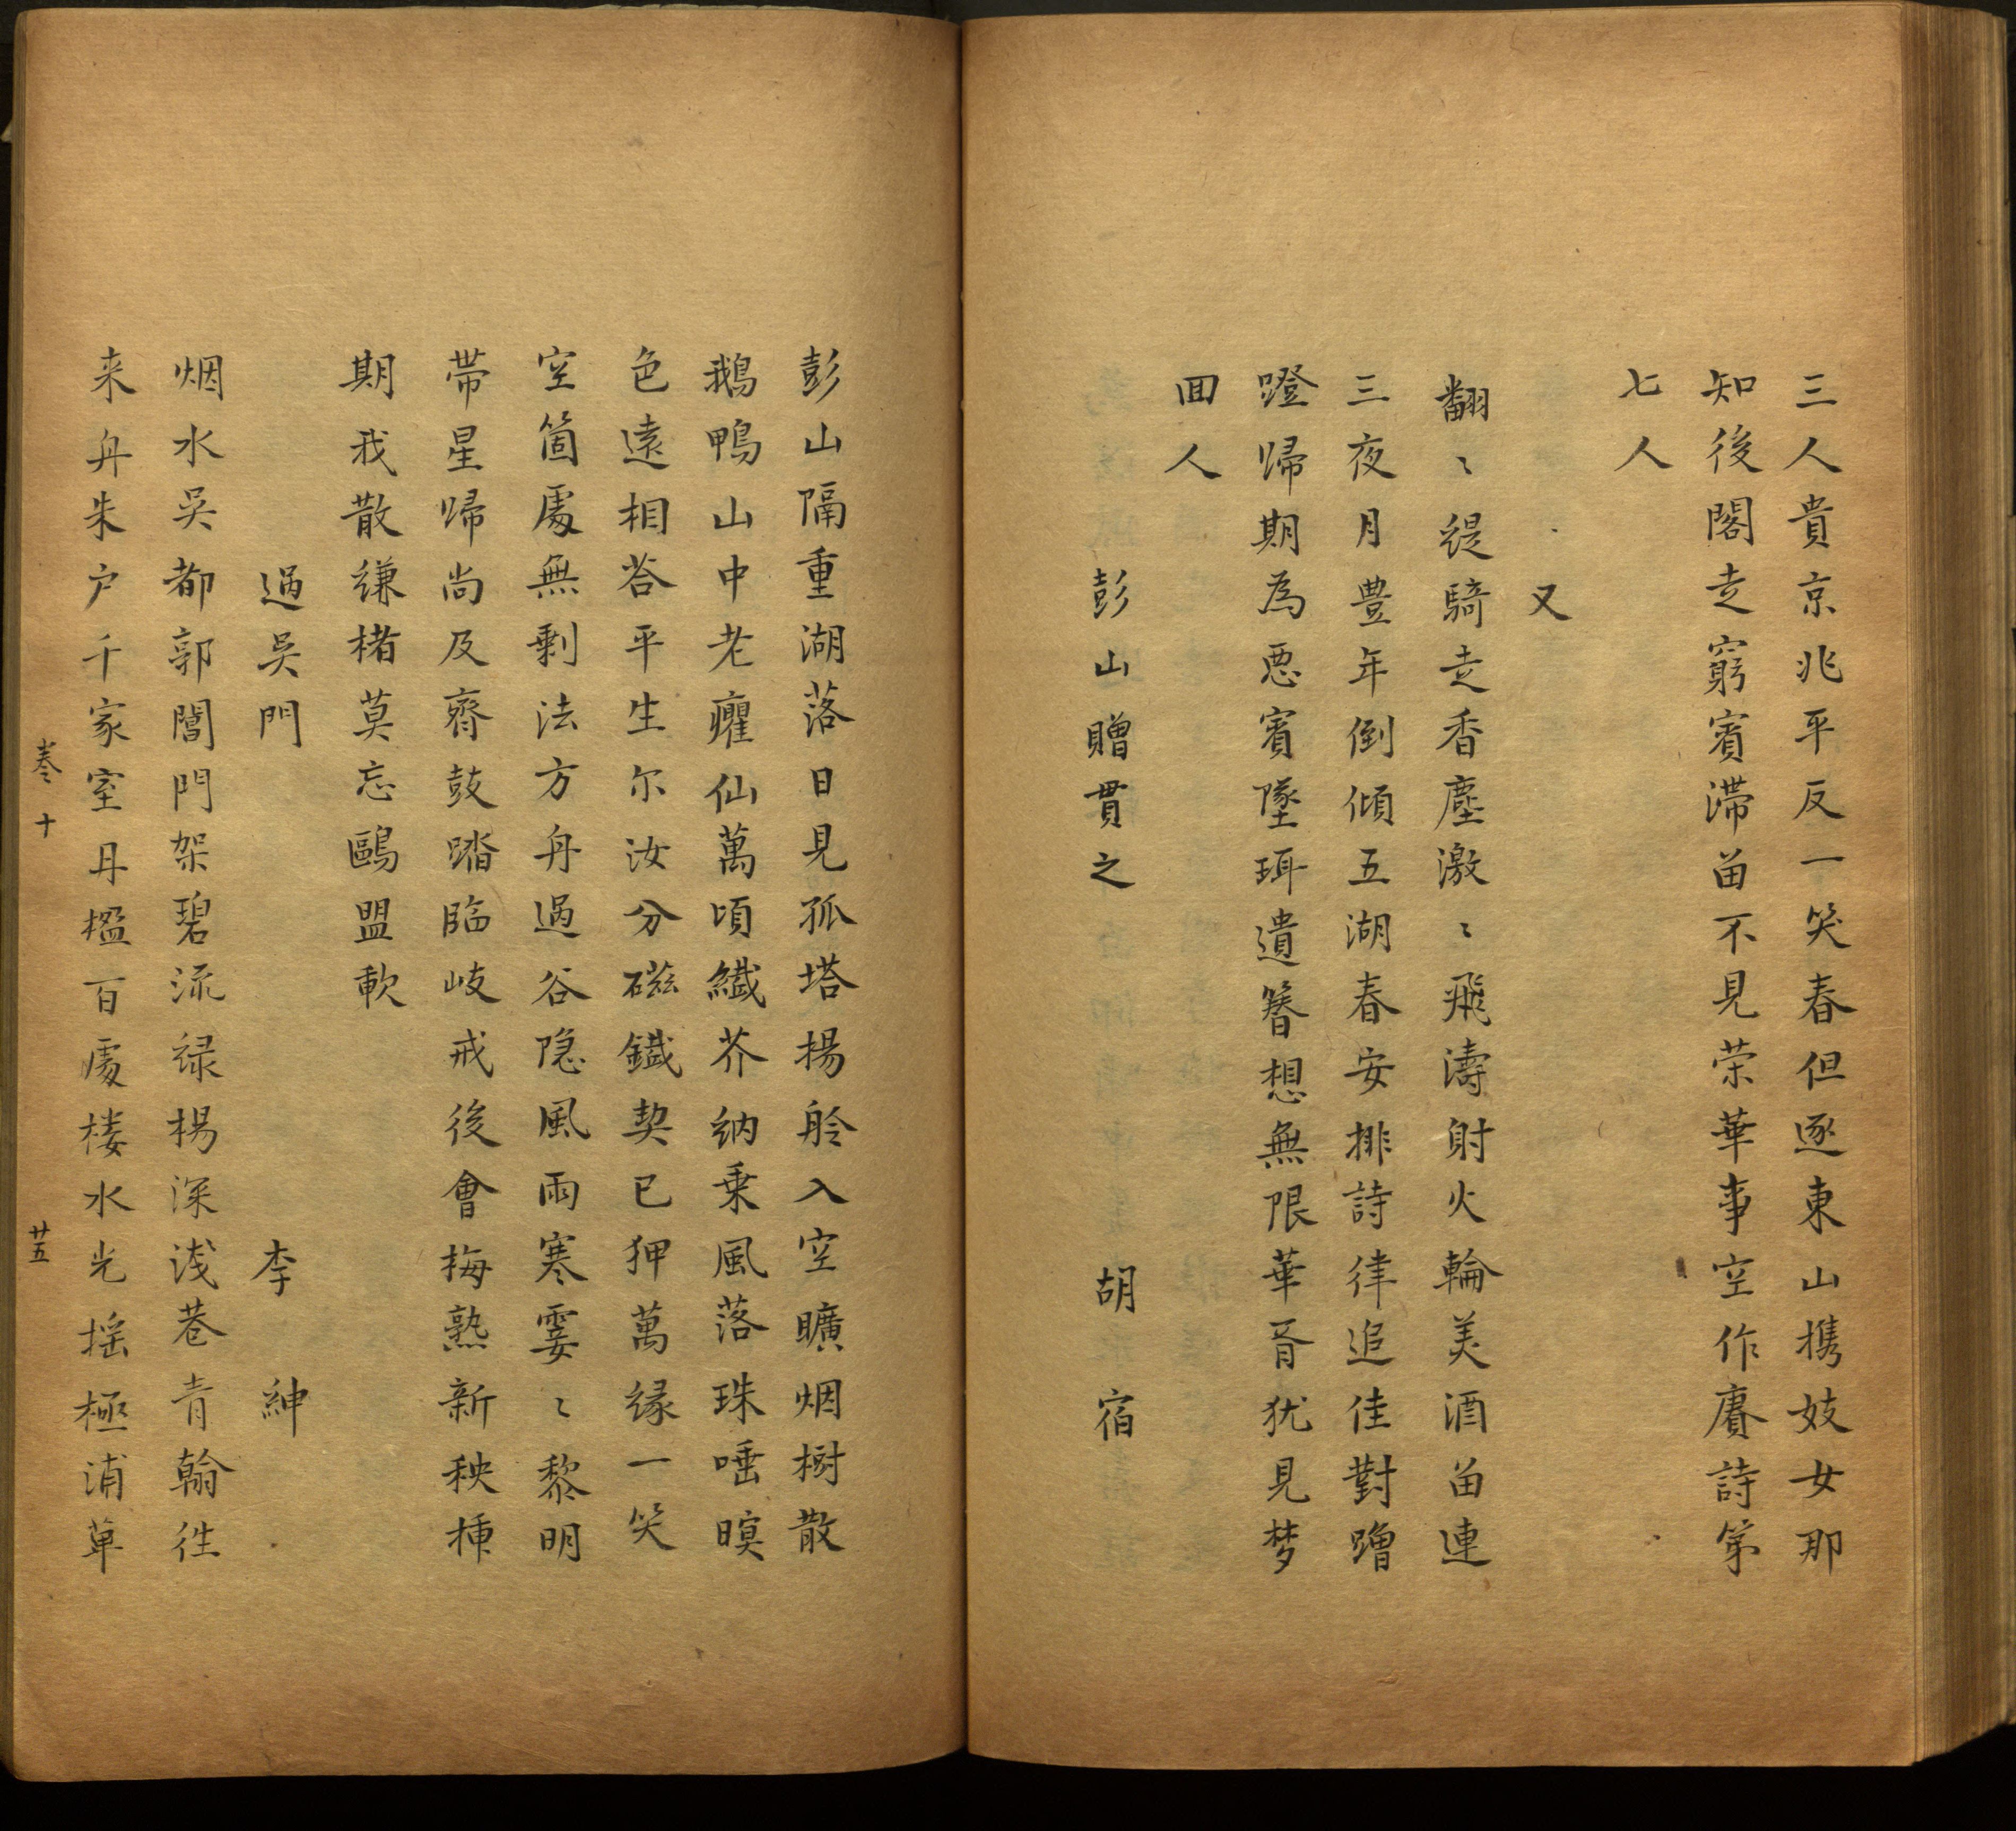 三人貴京兆平反一笑春但逐東山携妓女那
知後閣走窮賓滯畄不見荣華事空作賡詩第
七人
又
翻〻緹騎走香塵激〻飛濤射火輪美酒畄連
三夜月豊年倒傾五湖春安排詩律追佳對蹭
蹬歸期為悪賓墜珥遺簪想無限華胥犹見梦
囬人
彭山贈貫之 胡宿
彭山隔重湖落日見孤塔揚舲入空曠烟樹散
鵝鴨山中老癯仙萬頃纖芥納乗風落珠唾暝
色遠相荅平生尔汝分磁鐵契已狎萬緣一笑
空箇處無剩法方舟過谷隐風雨寒霎〻黎明
帶星歸尚及齋鼓踏臨岐戒後會梅熟新秧揷
期我散縑楮莫忘鷗盟軟
過吳門 李紳
烟水吳都郭閶門架碧流禄楊深浅巷青翰徃
来舟朱户千家室丹楹百處楼水光揺極浦草
卷十 廿五